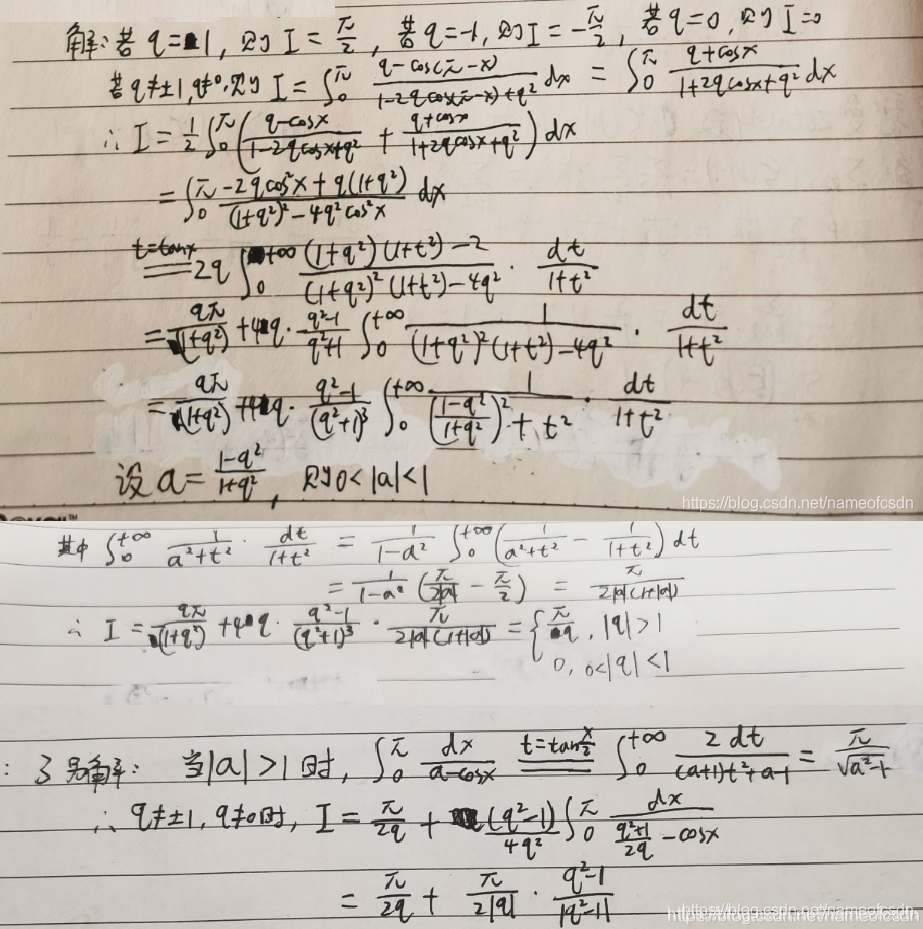 解:若 q=1, 则 I = π/2, 若 q=-1, 则 I = -π/2, 若 q=0, 则 I=0
若 q≠±1, q≠0, 则 I = ∫_0^π (q-cos(π-x))/(1-2qcos(π-x)+q²) dx = ∫_0^π (q+cosx)/(1+2qcosx+q²) dx
∴ I = 1/2 ∫_0^π ((q-cosx)/(1-2qcosx+q²) + (q+cosx)/(1+2qcosx+q²)) dx
= ∫_0^π (-2qcos²x + q(1+q²))/((1+q²)² - 4q²cos²x) dx
t=tanx == 2q ∫_0^{+∞} ((1+q²)(1+t²)-2)/((1+q²)²(1+t²)-4q²) · dt/(1+t²)
= qπ/(1+q²) + 4q · (q²-1)/(q²+1) ∫_0^{+∞} 1/((1+q²)²(1+t²)-4q²) · dt/(1+t²)
= qπ/(1+q²) + 4q · (q²-1)/(q²+1)³ ∫_0^{+∞} 1/(((1-q²)/(1+q²))² + t²) · dt/(1+t²)
设 a = (1-q²)/(1+q²), 则 0<|a|<1
https://blog.csdn.net/nameofcsdn
其中 ∫_0^{+∞} 1/(a²+t²) · dt/(1+t²) = 1/(1-a²) ∫_0^{+∞} (1/(a²+t²) - 1/(1+t²)) dt
= 1/(1-a²) (π/(2|a|) - π/2) = π/(2|a|(1+|a|))
∴ I = qπ/(1+q²) + 4q · (q²-1)/(q²+1)³ · π/(2|a|(1+|a|)) = { π/q, |q|>1
0, 0<|q|<1
: 3 另解: 当|a|>1时, ∫_0^π dx/(a-cosx) t=tan x/2 == ∫_0^{+∞} 2dt/((a+1)t²+a-1) = π/√(a²-1)
∴ q≠±1, q≠0时, I = π/(2q) + (q²-1)/(4q²) ∫_0^π dx/((q²+1)/(2q) - cosx)
= π/(2q) + π/(2|q|) · (q²-1)/|q²-1|
https://blog.csdn.net/nameofcsdn